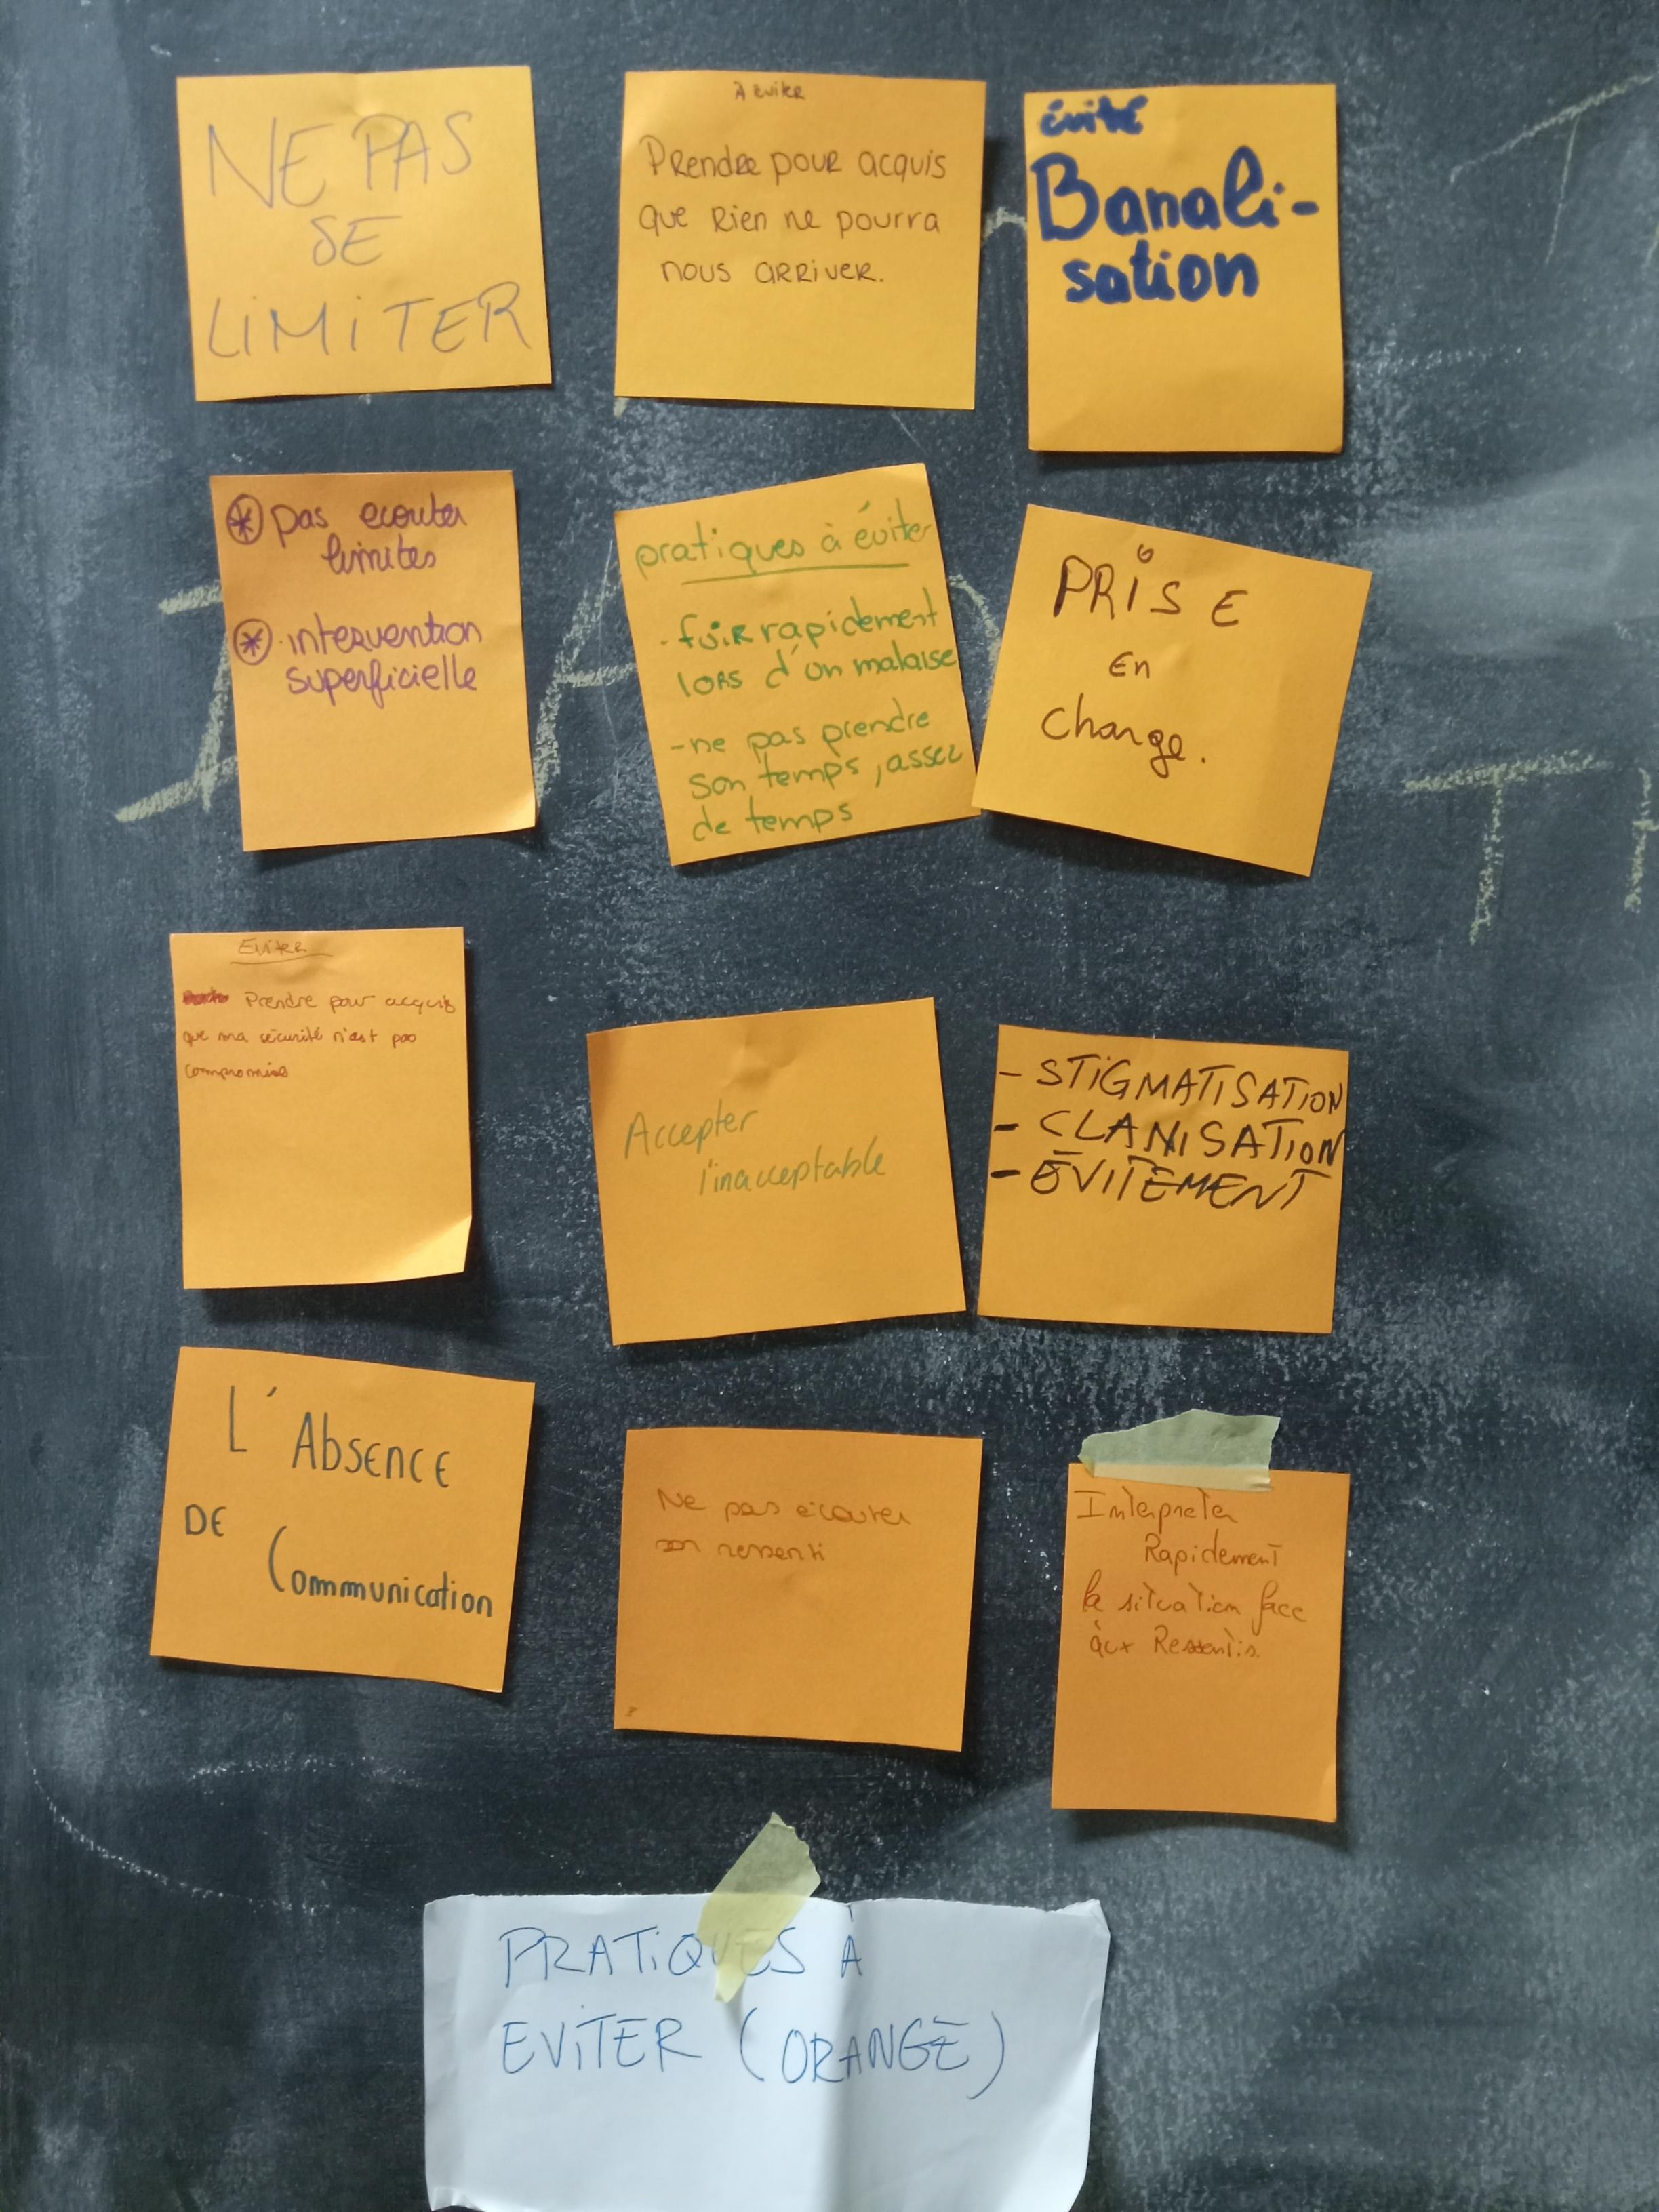 NE PAS
SE
LiMiTER
À éviter
Prendre pour acquis
que rien ne pourra
nous arriver.
évité
Banali-
sation
pas ecouter
limites
intervention
superficielle
pratiques à éviter
- fuir rapidement
lors d'un malaise
- ne pas prendre
son temps, assez
de temps
PRISE
En
charge.
Eviter
Prendre pour acquis
que ma sécurité n'est pas
compromise
Accepter
l'inacceptable
- STiGMATiSATiON
- CLANiSATiON
- ÉVITEMENT
L'Absence
DE
Communication
Ne pas écouter
son ressenti
Interpreter
Rapidement
la situation face
aux Ressentis.
PRATiQUES À
EViTER (ORANGE)